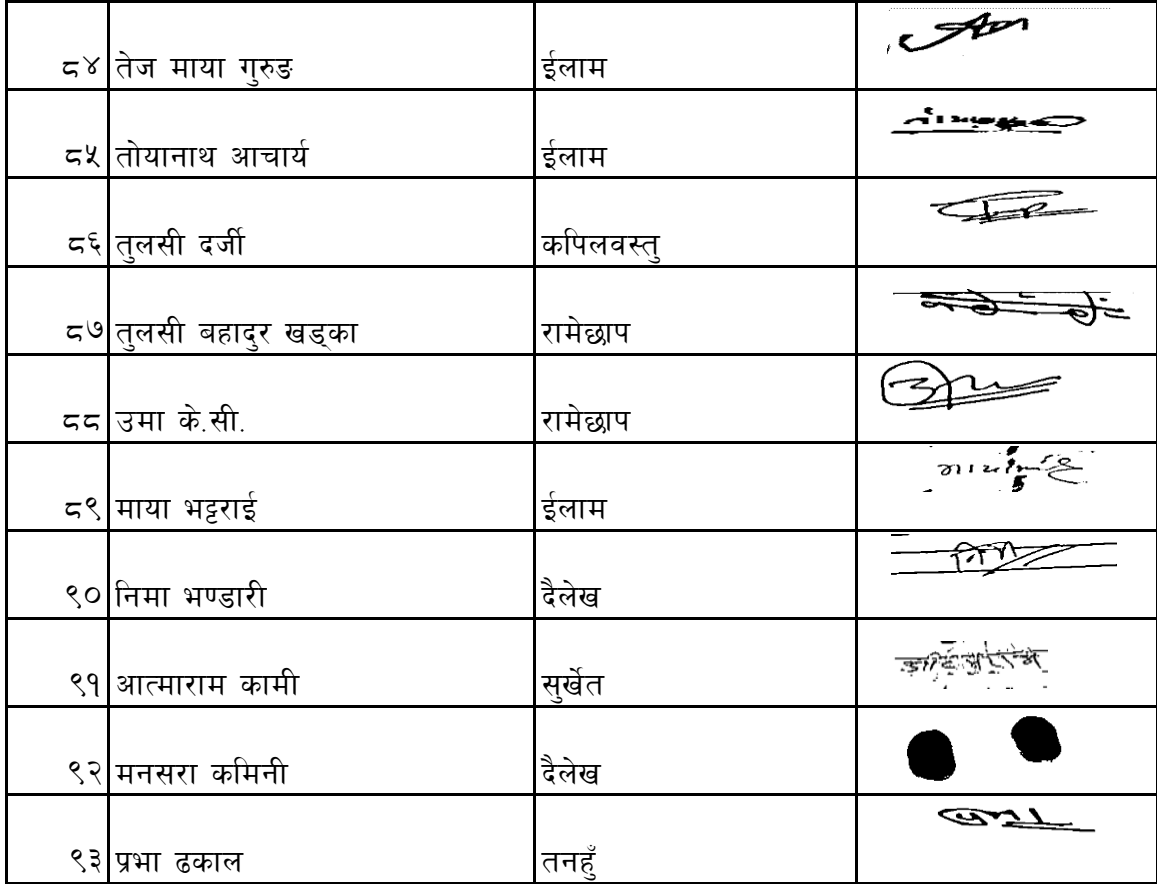 ८४ तेज माया गुरुङ ईलाम
८५ तोयानाथ आचार्य ईलाम
८६ तुलसी दर्जी कपिलवस्तु
८७ तुलसी बहादुर खड्का रामेछाप
८८ उमा के.सी. रामेछाप
८९ माया भट्टराई ईलाम
९० निमा भण्डारी दैलेख
९१ आत्माराम कामी सुर्खेत
९२ मनसरा कमिनी दैलेख
९३ प्रभा ढकाल तनहुँ